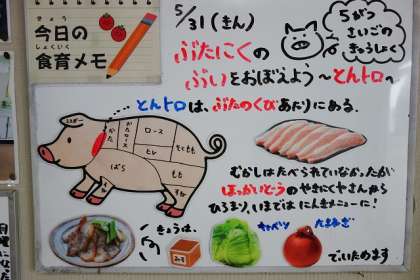 きょう
今日の
しょくいく
食育メモ
5/31(きん)
ぶたにくの
ぶいをおぼえよう~とんトロ~
5がつ
さいごの
きゅうしょく
とんトロは、ぶたのくびあたりにある。
かた
かたロース
ロース
ヒレ
ばら
もも
そともも
むかしはたべられていなかったが
ほっかいどうのやきにくやさんから
ひろまり、いまではにんきメニューに!
きょうは、
キャベツ
たまねぎ
でいためます